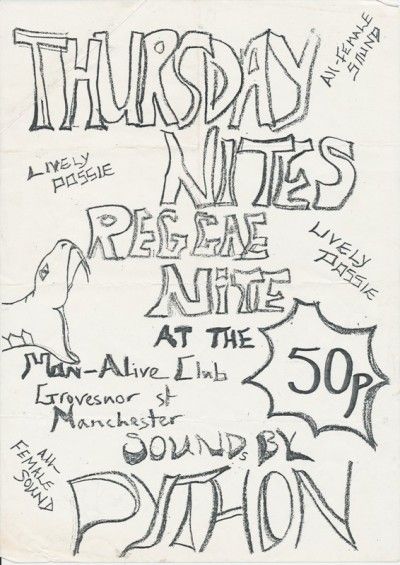 THURSDAY
All-FEMALE
SOUND
NITES
LIVELY
POSSIE
REGGAE
LIVELY
POSSIE
NITE
AT THE
50p
MAN-ALive Club
Grovesnor st
Manchester
SOUNDS BY
All-
FEMALE
SOUND
PYTHON